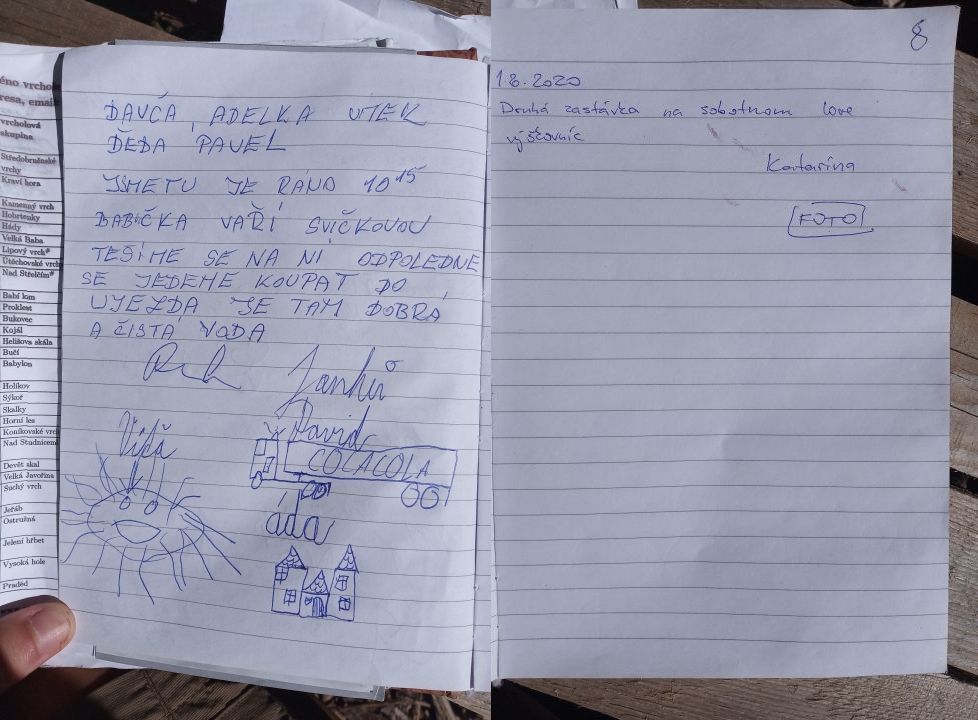 éno vrcho
resa, email
vrcholová
skupina
Středobrněnské
vrchy
Kraví hora
Kamenný vrch
Hobrtenky
Hády
Velká Baba
Lipový vrch*
Útěchovské vrch
Nad Střelčím*
Babí lom
Proklest
Bukovec
Kojál
Helišova skála
Bučí
Babylon
Holíkov
Sýkoř
Skalky
Horní les
Koníkovské vrch
Nad Studnicem
Devět skal
Velká Javořina
Suchý vrch
Jeřáb
Ostružná
Jelení hřbet
Vysoká hole
Praděd
DAVČA, ADELKA VITEK
DĚDA PAVEL
JSME TU JE RÁNO 10 15
BABIČKA VAŘÍ SVÍČKOVOU
TEŠÍME SE NA NI ODPOLEDNE
SE JEDEME KOUPAT DO
UJEZDA JE TAM DOBRÁ
A ČISTÁ VODA
Janků
David
Víťa
COCACOLA
áda
8
1.8.2020
Druhá zastávka na sobotnom love
výškovníc
Katarína
FOTO